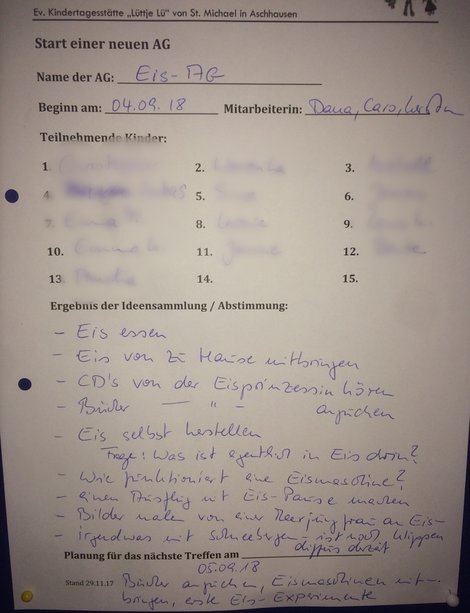 Ev. Kindertagesstätte „Lüttje Lü“ von St. Michael in Aschhausen
Start einer neuen AG
Name der AG: Eis-AG
Beginn am: 04.09.18 Mitarbeiterin: Dana, Caro, Kerstin
Teilnehmende Kinder:
1. 2. 3.
4. 5. 6.
7. 8. 9.
10. 11. 12.
13. 14. 15.
Ergebnis der Ideensammlung / Abstimmung:
- Eis essen
- Eis von zu Hause mitbringen
- CD's von der Eisprinzessin hören
- Bücher — " — angucken
- Eis selbst herstellen
Frage: Was ist eigentlich in Eis drin?
- Wie funktioniert eine Eismaschine?
- einen Ausflug mit Eis-Pause machen
- Bilder malen von einer Meerjungfrau an Eis-
- irgendwas mit Schneebergen - ist noch klippen
diffus derzeit
Planung für das nächste Treffen am
05.09.18
Stand 29.11.17 Bücher angucken, Eismaschinen mit-
bringen, erste Eis-Experimente